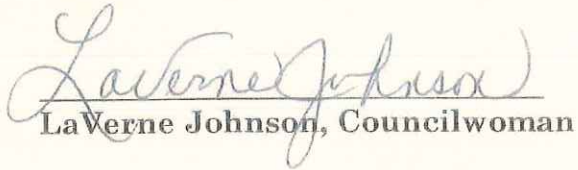 LaVerne Johnson
LaVerne Johnson, Councilwoman